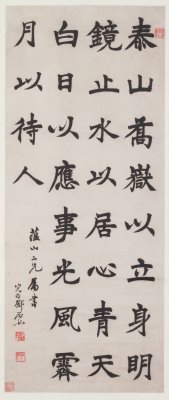 泰山喬嶽以立身明
鏡止水以居心青天
白日以應事光風霽
月以待人
蘊山二兄屬書
完白鄧石如